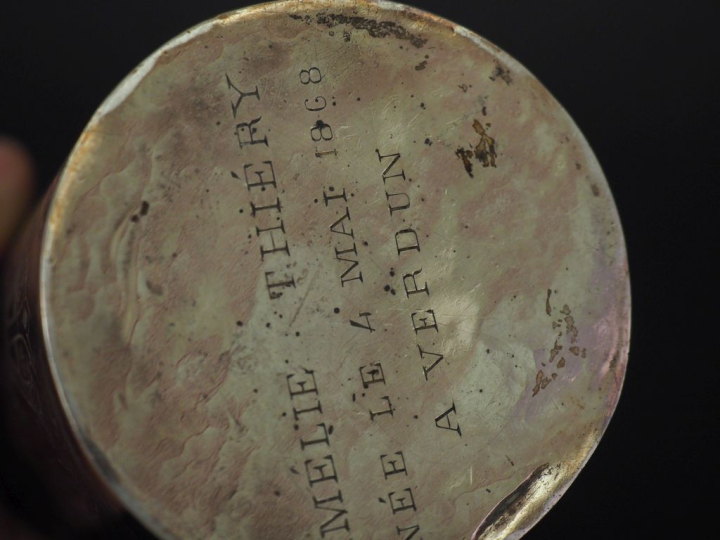 MÉLIE THIÉRY
NÉE LE 4 MAI 1868
A VERDUN